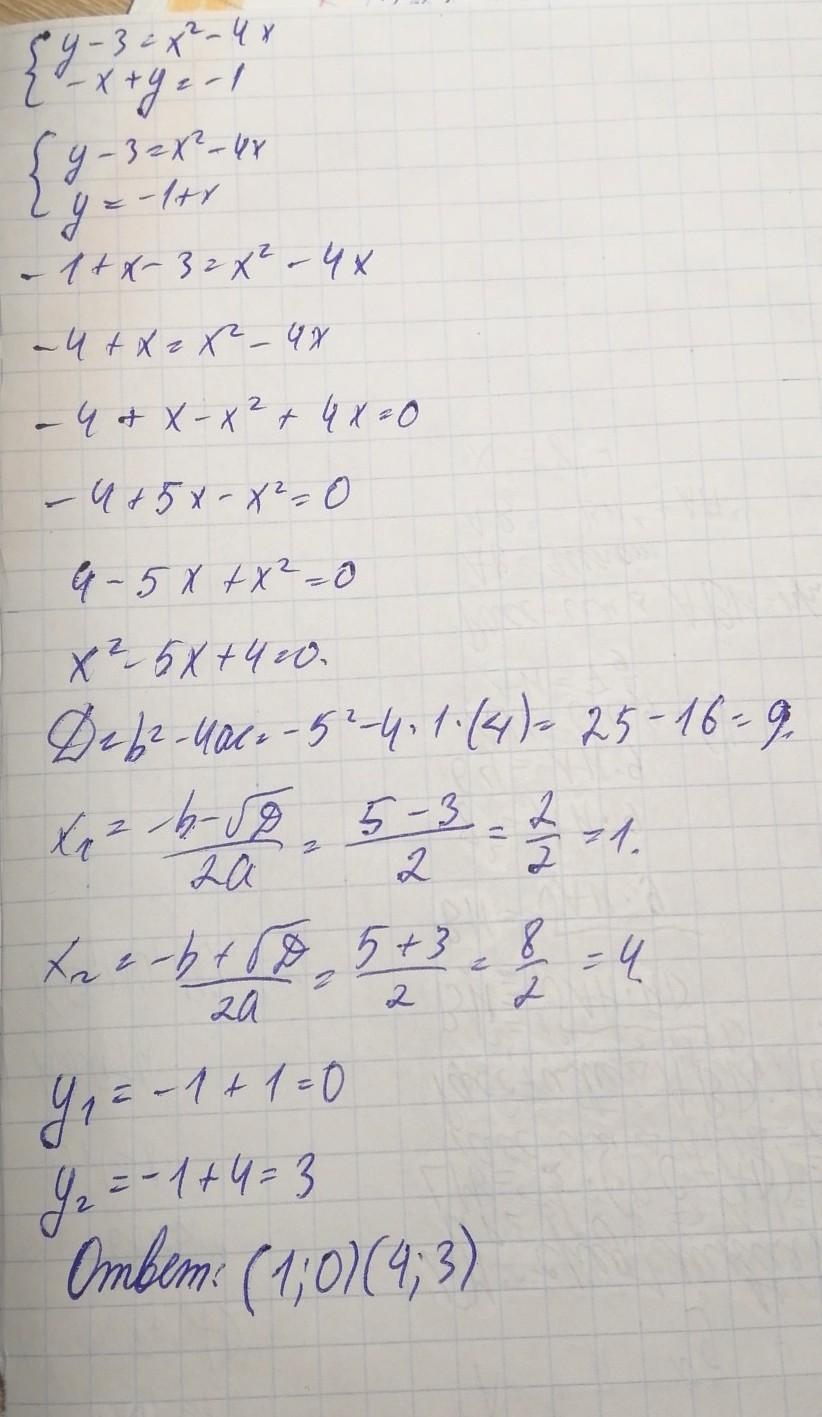 { y - 3 = x² - 4x
{ - x + y = - 1
{ y - 3 = x² - 4x
{ y = - 1 + x
- 1 + x - 3 = x² - 4x
- 4 + x = x² - 4x
- 4 + x - x² + 4x = 0
- 4 + 5x - x² = 0
4 - 5x + x² = 0
x² - 5x + 4 = 0.
D = b² - 4ac = - 5² - 4 · 1 · (4) = 25 - 16 = 9.
x₁ = (-b - √D)/(2a) = (5 - 3)/2 = 2/2 = 1.
x₂ = (-b + √D)/(2a) = (5 + 3)/2 = 8/2 = 4
y₁ = - 1 + 1 = 0
y₂ = - 1 + 4 = 3
Ответ: (1; 0) (4; 3)